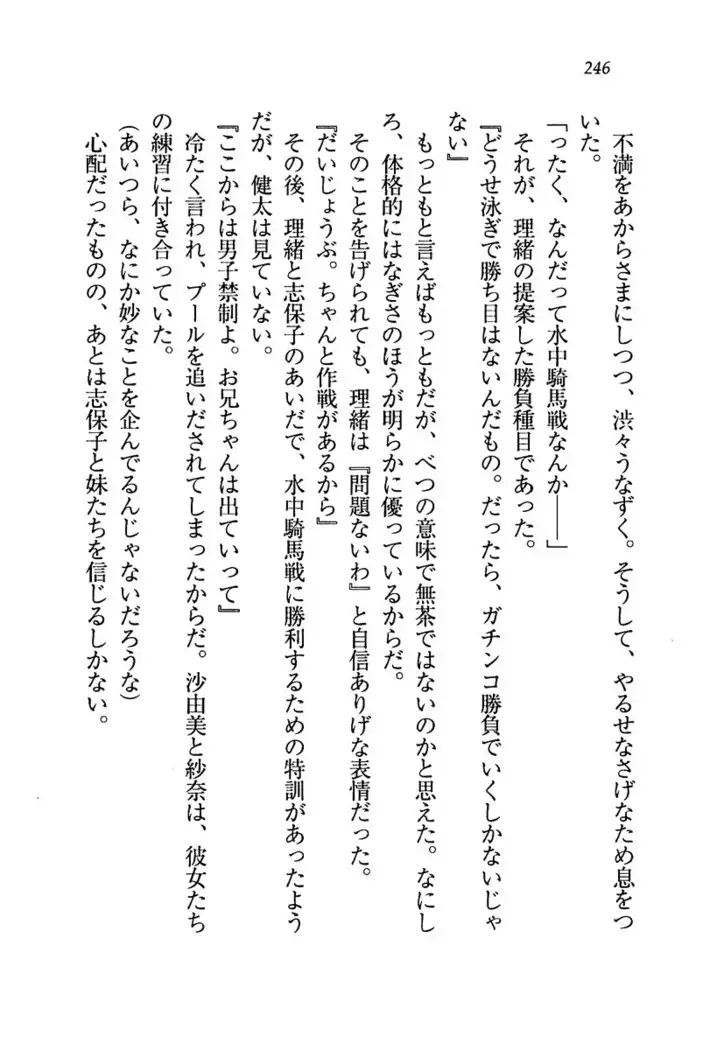 246
　不満をあからさまにしつつ、渋々うなずく。そうして、やるせなさげなため息をつ
いた。
「ったく、なんだって水中騎馬戦なんか――」
　それが、理緒の提案した勝負種目であった。
『どうせ泳ぎで勝ち目はないんだもの。だったら、ガチンコ勝負でいくしかないじゃ
ない』
　もっともと言えばもっともだが、べつの意味で無茶ではないのかと思えた。なにし
ろ、体格的にはなぎさのほうが明らかに優っているからだ。
　そのことを告げられても、理緒は『問題ないわ』と自信ありげな表情だった。
『だいじょうぶ。ちゃんと作戦があるから』
　その後、理緒と志保子のあいだで、水中騎馬戦に勝利するための特訓があったよう
だが、健太は見ていない。
『ここからは男子禁制よ。お兄ちゃんは出ていって』
　冷たく言われ、プールを追いだされてしまったからだ。沙由美と紗奈は、彼女たち
の練習に付き合っていた。
（あいつら、なにか妙なことを企んでるんじゃないだろうな）
　心配だったものの、あとは志保子と妹たちを信じるしかない。